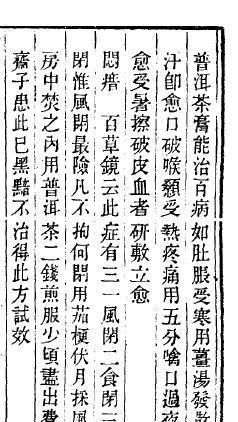 普洱茶膏能治百病如肚脹受寒用薑湯發散
汁卽愈口破喉顙受熱疼痛用五分噙口過夜
愈受暑擦破皮血者研敷立愈
悶瘄　百草鏡云此症有三一風閉二食閉三
閉惟風閉最險凡不拘何閉用茄梗伏月採風
房中焚之內用普洱茶二錢煎服少頃盡出費
齋子患此已黑黯不治得此方試效